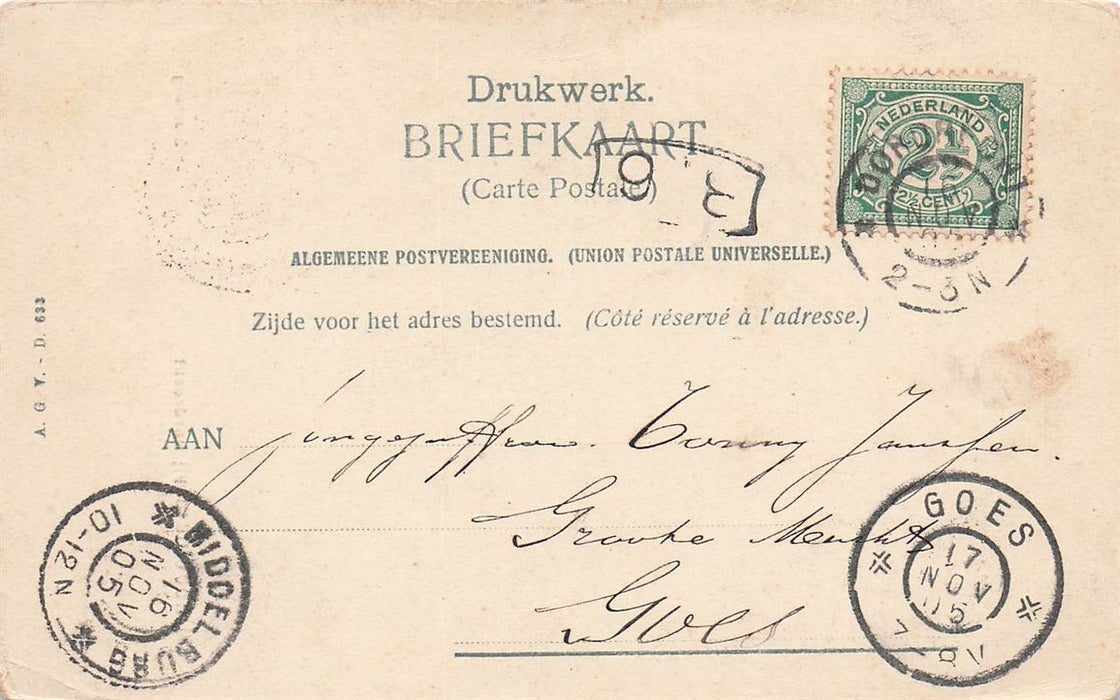 Drukwerk.
BRIEFKAART
(Carte Postale)
ALGEMEENE POSTVEREENIGING. (UNION POSTALE UNIVERSELLE.)
Zijde voor het adres bestemd. (Côté réservé à l'adresse.)
NEDERLAND
2½
2½ CENT
DORDRECHT
16
NOV
2-3N
6
A. G. V. - D. 633
AAN Jongejuffrouw. Tonny Janssen.
Groote Markt
Goes
MIDDELBURG
10-12N
16
NOV
05
GOES
17
NOV
05
7-8V